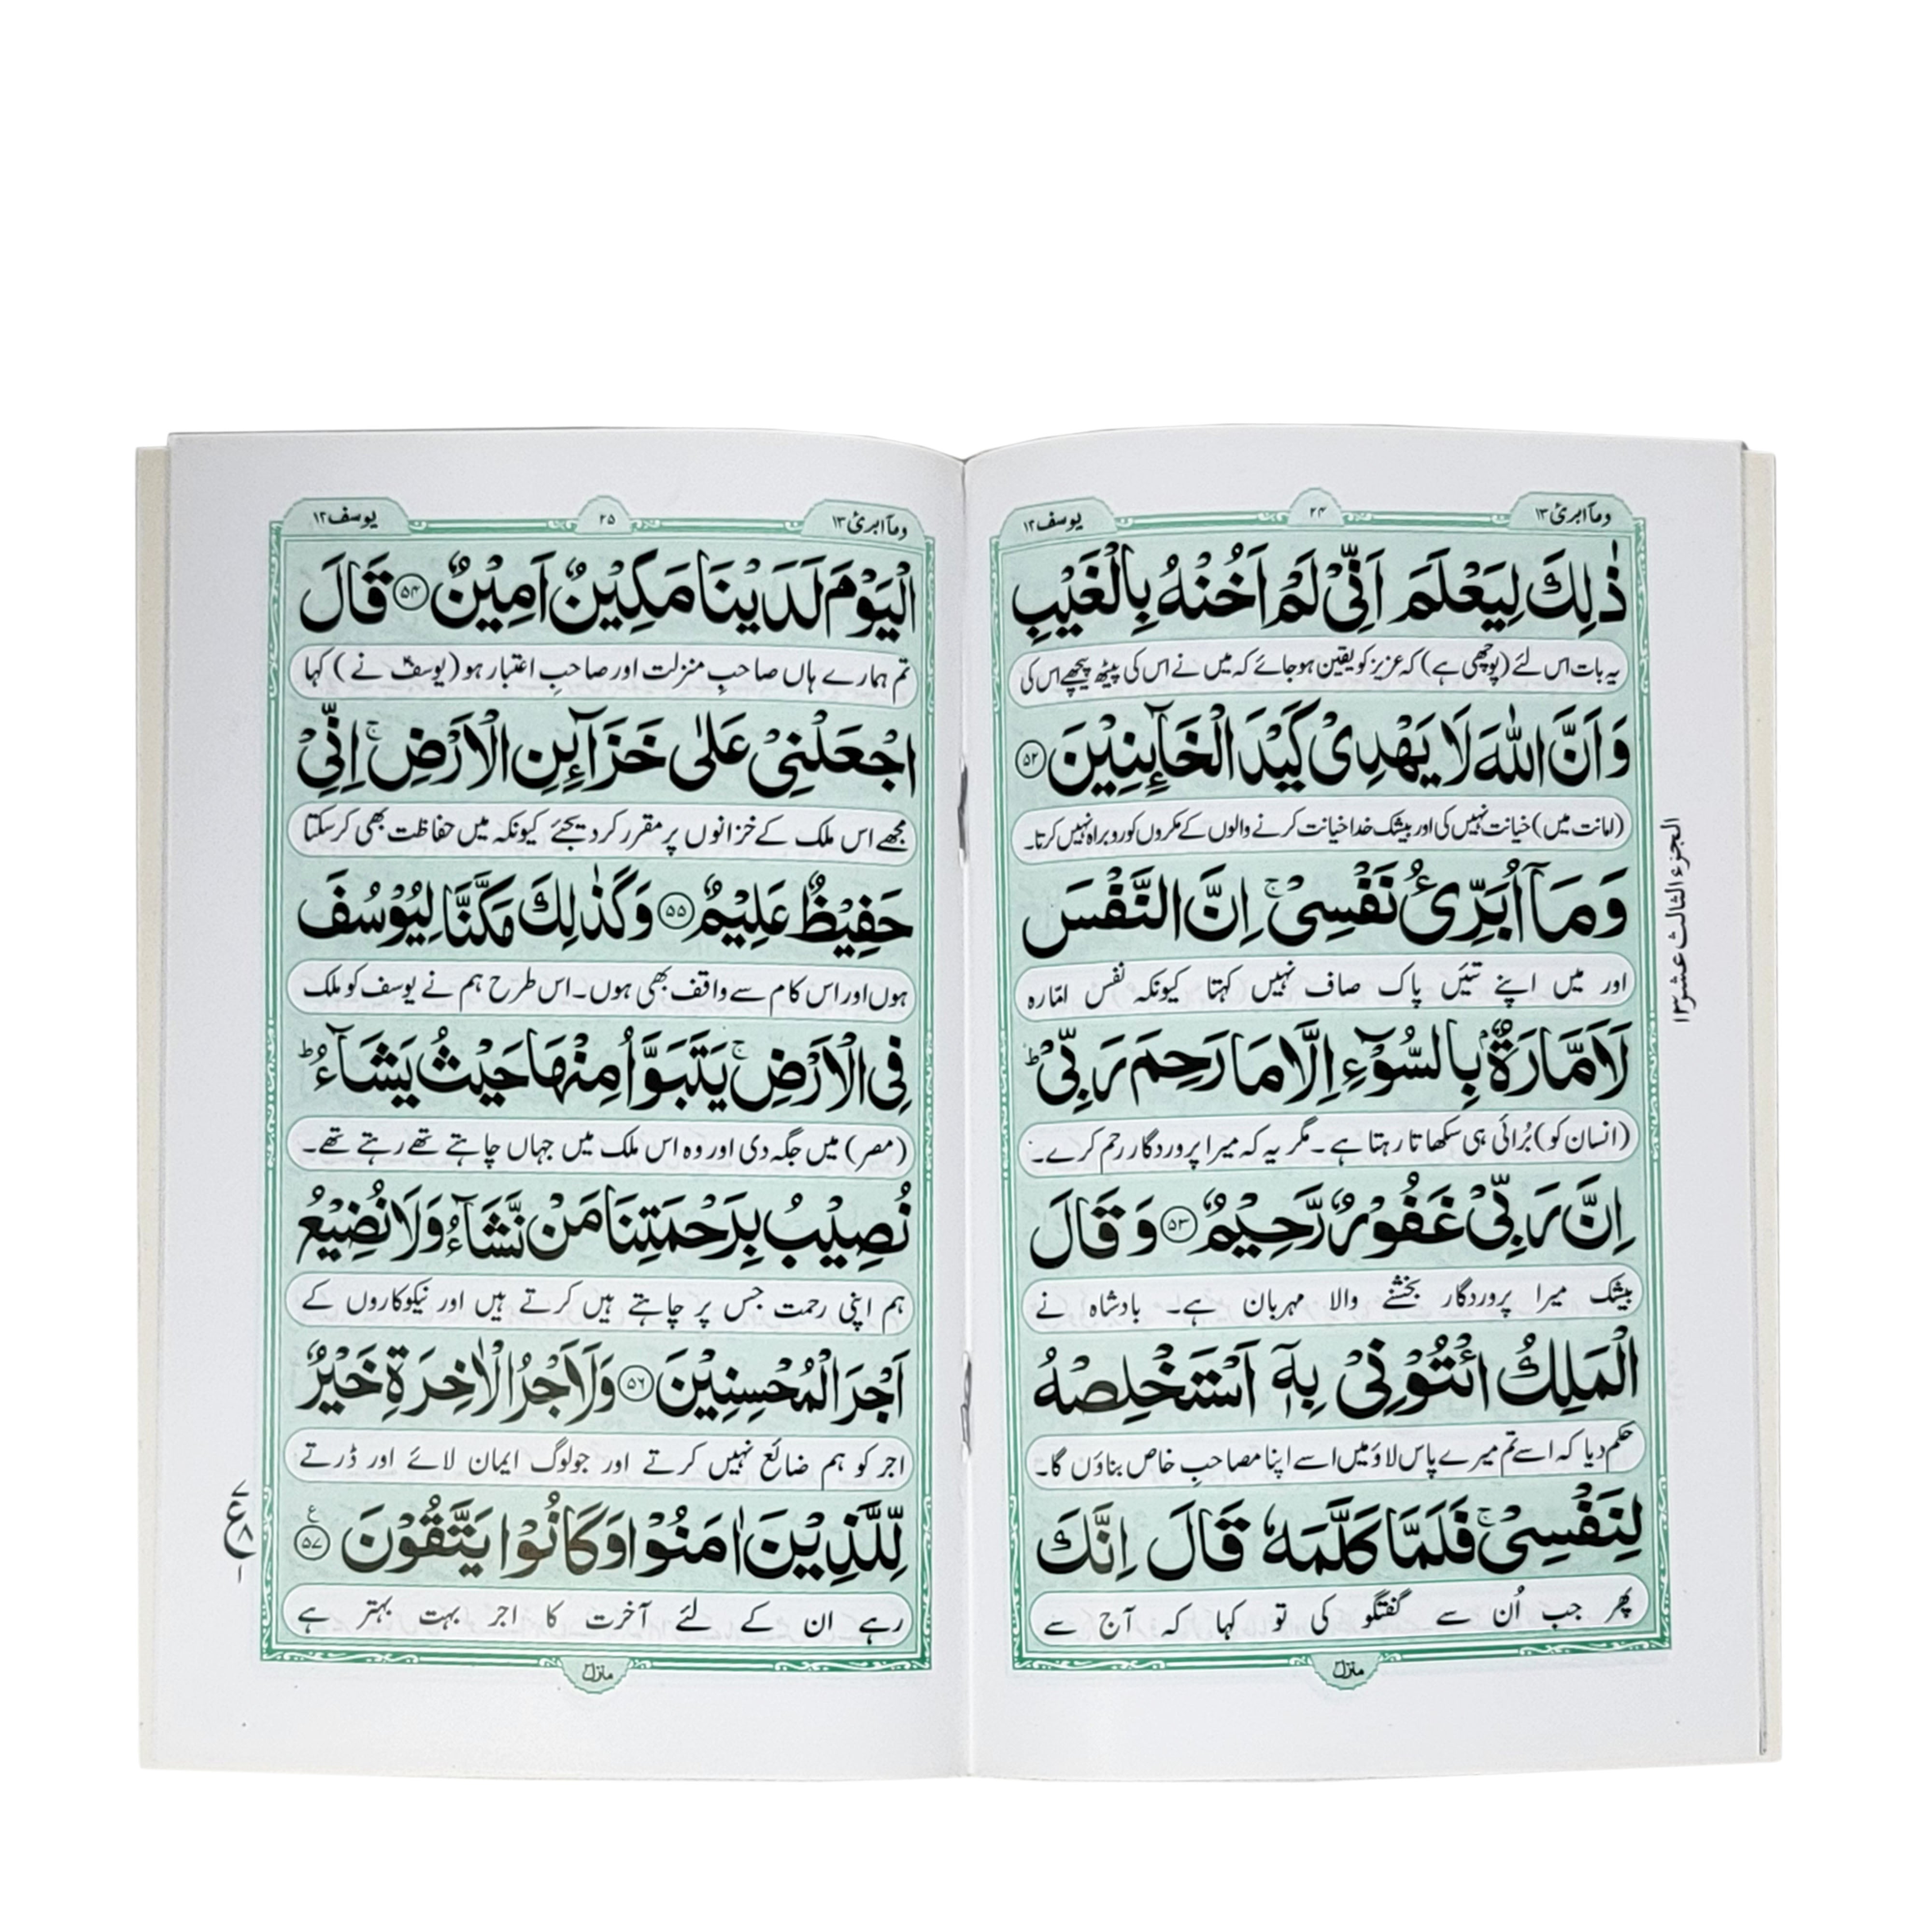 وماابرئ ۱۳
۲۴
یوسف ۱۲
ذٰلِكَ لِيَعْلَمَ اَنِّيْ لَمْ اَخُنْهُ بِالْغَيْبِ
یہ بات اس لئے (پوچھی ہے) کہ عزیز کو یقین ہو جائے کہ میں نے اس کی پیٹھ پیچھے اس کی
وَاَنَّ اللّٰهَ لَا يَهْدِيْ كَيْدَ الْخَآئِنِيْنَ ۵۲
(امانت میں) خیانت نہیں کی اور بیشک خدا خیانت کرنے والوں کے مکروں کو روبراہ نہیں کرتا۔
وَمَآ اُبَرِّئُ نَفْسِيْ ۚ اِنَّ النَّفْسَ
اور میں اپنے تئیں پاک صاف نہیں کہتا کیونکہ نفس امّارہ
لَاَمَّارَةٌۢ بِالسُّوْٓءِ اِلَّا مَا رَحِمَ رَبِّيْ ؕ
(انسان کو) بُرائی ہی سکھاتا رہتا ہے۔ مگر یہ کہ میرا پروردگار رحم کرے۔
اِنَّ رَبِّيْ غَفُوْرٌ رَّحِيْمٌ ۵۳ وَقَالَ
بیشک میرا پروردگار بخشنے والا مہربان ہے۔ بادشاہ نے
الْمَلِكُ ائْتُوْنِيْ بِهٖٓ اَسْتَخْلِصْهُ
حکم دیا کہ اسے تم میرے پاس لاؤ میں اسے اپنا مصاحبِ خاص بناؤں گا۔
لِنَفْسِيْ ۚ فَلَمَّا كَلَّمَهٗ قَالَ اِنَّكَ
پھر جب اُن سے گفتگو کی تو کہا کہ آج سے
منزل ۳
الجزء الثالث عشر ۱۳
وماابرئ ۱۳
۲۵
یوسف ۱۲
الْيَوْمَ لَدَيْنَا مَكِيْنٌ اَمِيْنٌ ۵۴ قَالَ
تم ہمارے ہاں صاحبِ منزلت اور صاحبِ اعتبار ہو (یوسفؑ نے) کہا
اجْعَلْنِيْ عَلٰى خَزَآئِنِ الْاَرْضِ ۚ اِنِّيْ
مجھے اس ملک کے خزانوں پر مقرر کر دیجئے کیونکہ میں حفاظت بھی کر سکتا
حَفِيْظٌ عَلِيْمٌ ۵۵ وَكَذٰلِكَ مَكَّنَّا لِيُوْسُفَ
ہوں اور اس کام سے واقف بھی ہوں۔ اس طرح ہم نے یوسف کو ملک
فِي الْاَرْضِ ۚ يَتَبَوَّاُ مِنْهَا حَيْثُ يَشَآءُ ؕ
(مصر) میں جگہ دی اور وہ اس ملک میں جہاں چاہتے تھے رہتے تھے۔
نُصِيْبُ بِرَحْمَتِنَا مَنْ نَّشَآءُ وَلَا نُضِيْعُ
ہم اپنی رحمت جس پر چاہتے ہیں کرتے ہیں اور نیکوکاروں کے
اَجْرَ الْمُحْسِنِيْنَ ۵۶ وَلَاَجْرُ الْاٰخِرَةِ خَيْرٌ
اجر کو ہم ضائع نہیں کرتے اور جو لوگ ایمان لائے اور ڈرتے
لِّلَّذِيْنَ اٰمَنُوْا وَكَانُوْا يَتَّقُوْنَ ۵۷ ع
رہے ان کے لئے آخرت کا اجر بہت بہتر ہے
منزل ۳
۷
ع ۸
۱